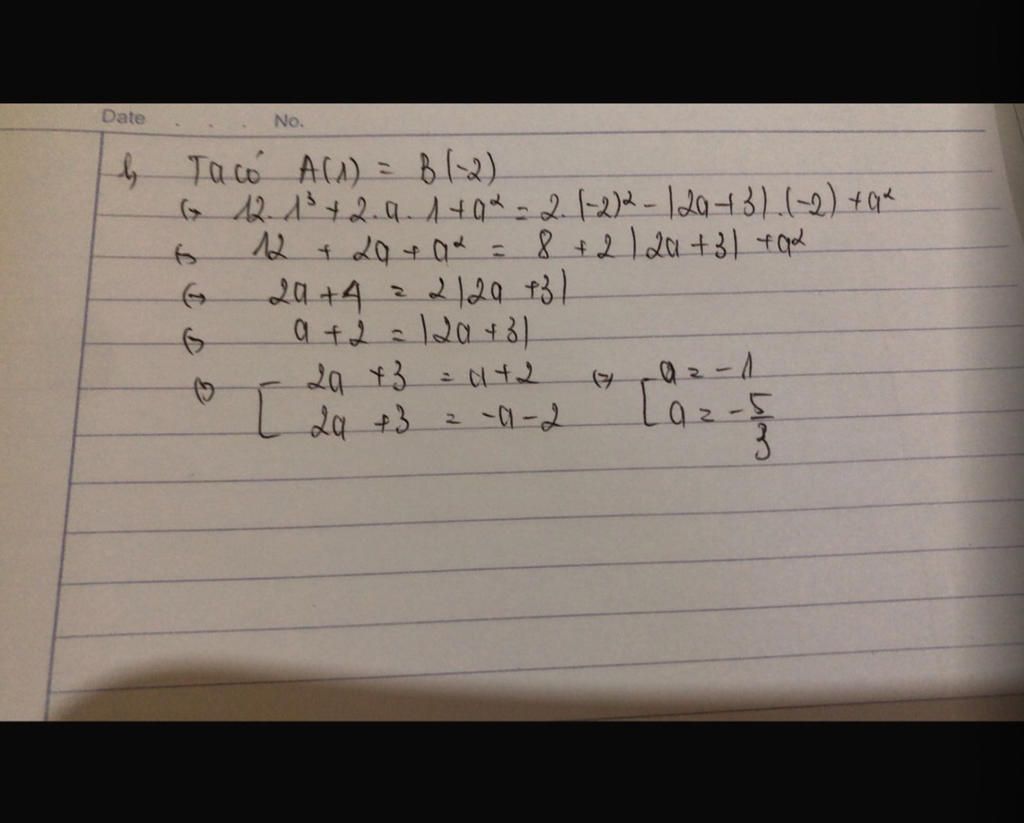 Date . . . No.
b, Ta có A(1) = B(-2)
⇔ 12.1³ + 2.a.1 + a² = 2.(-2)² - |2a+3|.(-2) + a²
⇔ 12 + 2a + a² = 8 + 2|2a+3| + a²
⇔ 2a + 4 = 2|2a+3|
⇔ a + 2 = |2a+3|
⇔ [ 2a + 3 = a + 2 ⇔ [ a = -1
2a + 3 = -a - 2 a = -5/3